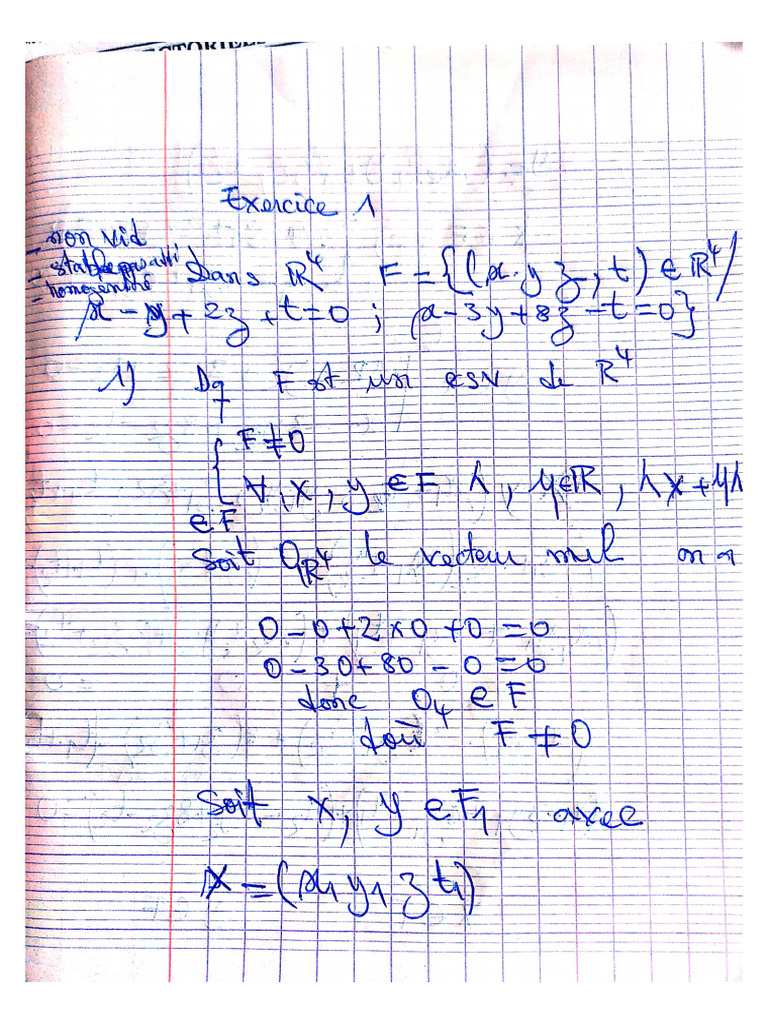 Exercice 1
- non vid
- stable par addi
- homogenéité
Dans ℝ⁴ F = {(x, y z, t) ∈ ℝ⁴/
x - y + 2z + t = 0 ; x - 3y + 8z - t = 0}
1) Dq F est un esv de ℝ⁴
{ F ≠ 0
∀, X, y ∈ F λ, μ ∈ ℝ, λx + μλ
∈ F
Soit 0ℝ⁴ le vecteur nul on a
0 - 0 + 2 x 0 + 0 = 0
0 - 30 + 80 - 0 = 0
donc 0₄ ∈ F
doù F ≠ 0
Soit x, y ∈ F, avec
X = (x₁ y₁ z t₁)